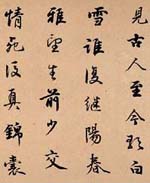 見古人至今頭白
雪誰復继陽春
雅望生前少交
情死後真錦囊